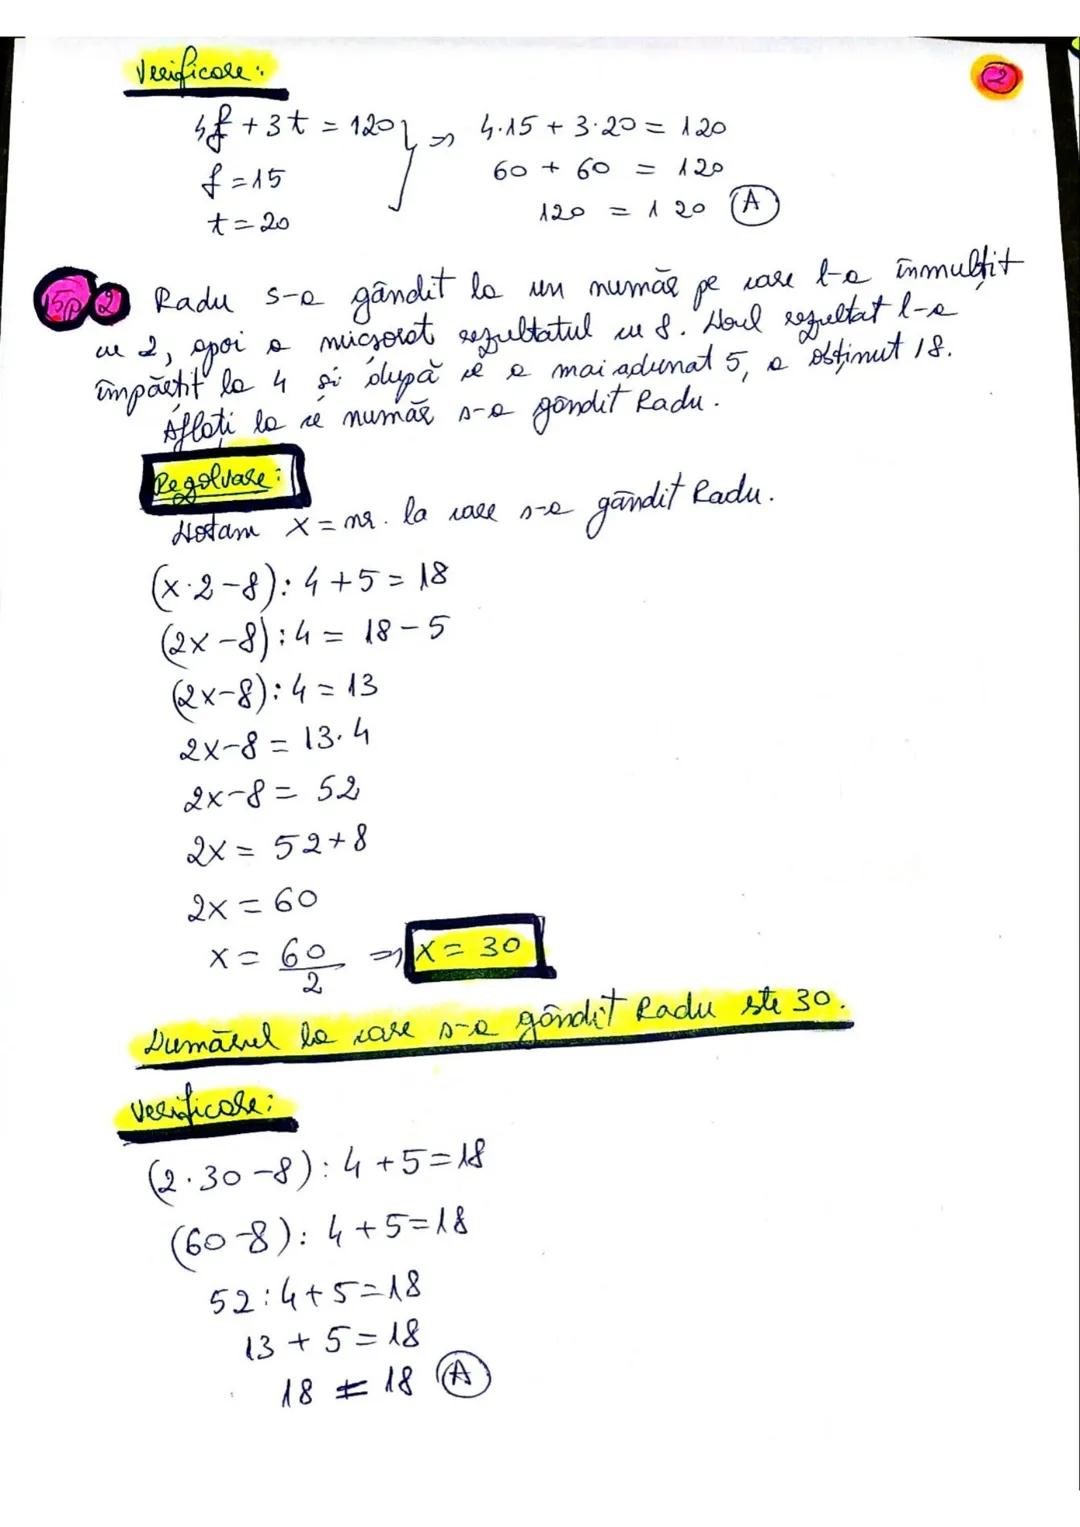 Verificare:
2
4f + 3t = 120 } => 4·15 + 3·20 = 120
f = 15
60 + 60 = 120
t = 20
120 = 120 A
15p 2 Radu s-a gândit la un număr pe care l-a înmulțit
cu 2, apoi a micșorat rezultatul cu 8. Noul rezultat l-a
împărțit la 4 și după ce a mai adunat 5, a obținut 18.
Aflați la ce număr s-a gândit Radu.
Rezolvare:
Notam x = nr. la care s-a gândit Radu.
(x·2-8):4+5=18
(2x-8):4 = 18-5
(2x-8):4 = 13
2x-8 = 13·4
2x-8 = 52
2x = 52+8
2x = 60
x = 60/2 => x = 30
Numărul la care s-a gândit Radu este 30.
Verificare:
(2·30-8):4+5=18
(60-8):4+5=18
52:4+5=18
13+5=18
18 = 18 A